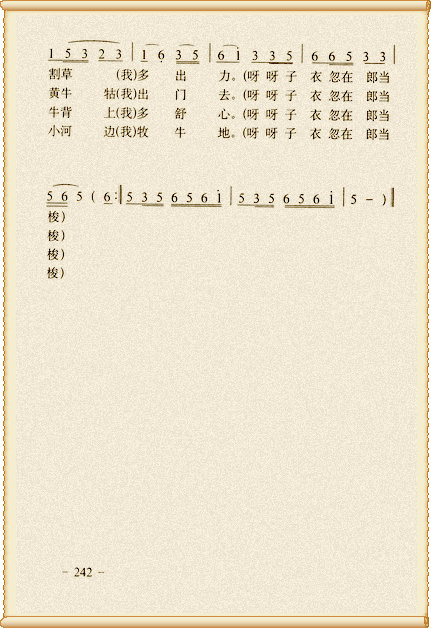 1 5 3 2 3 | 1 6 3 5 | 6 1 3 3 5 | 6 6 5 3 3 |
割草 (我)多 出 力。(呀 呀 子 衣 忽在 郎当
黄牛 牯(我)出 门 去。(呀 呀 子 衣 忽在 郎当
牛背 上(我)多 舒 心。(呀 呀 子 衣 忽在 郎当
小河 边(我)牧 牛 地。(呀 呀 子 衣 忽在 郎当
5 6 5 ( 6 :‖ 5 3 5 6 5 6 i | 5 3 5 6 5 6 i | 5 - ) ‖
梭)
梭)
梭)
梭)
- 242 -